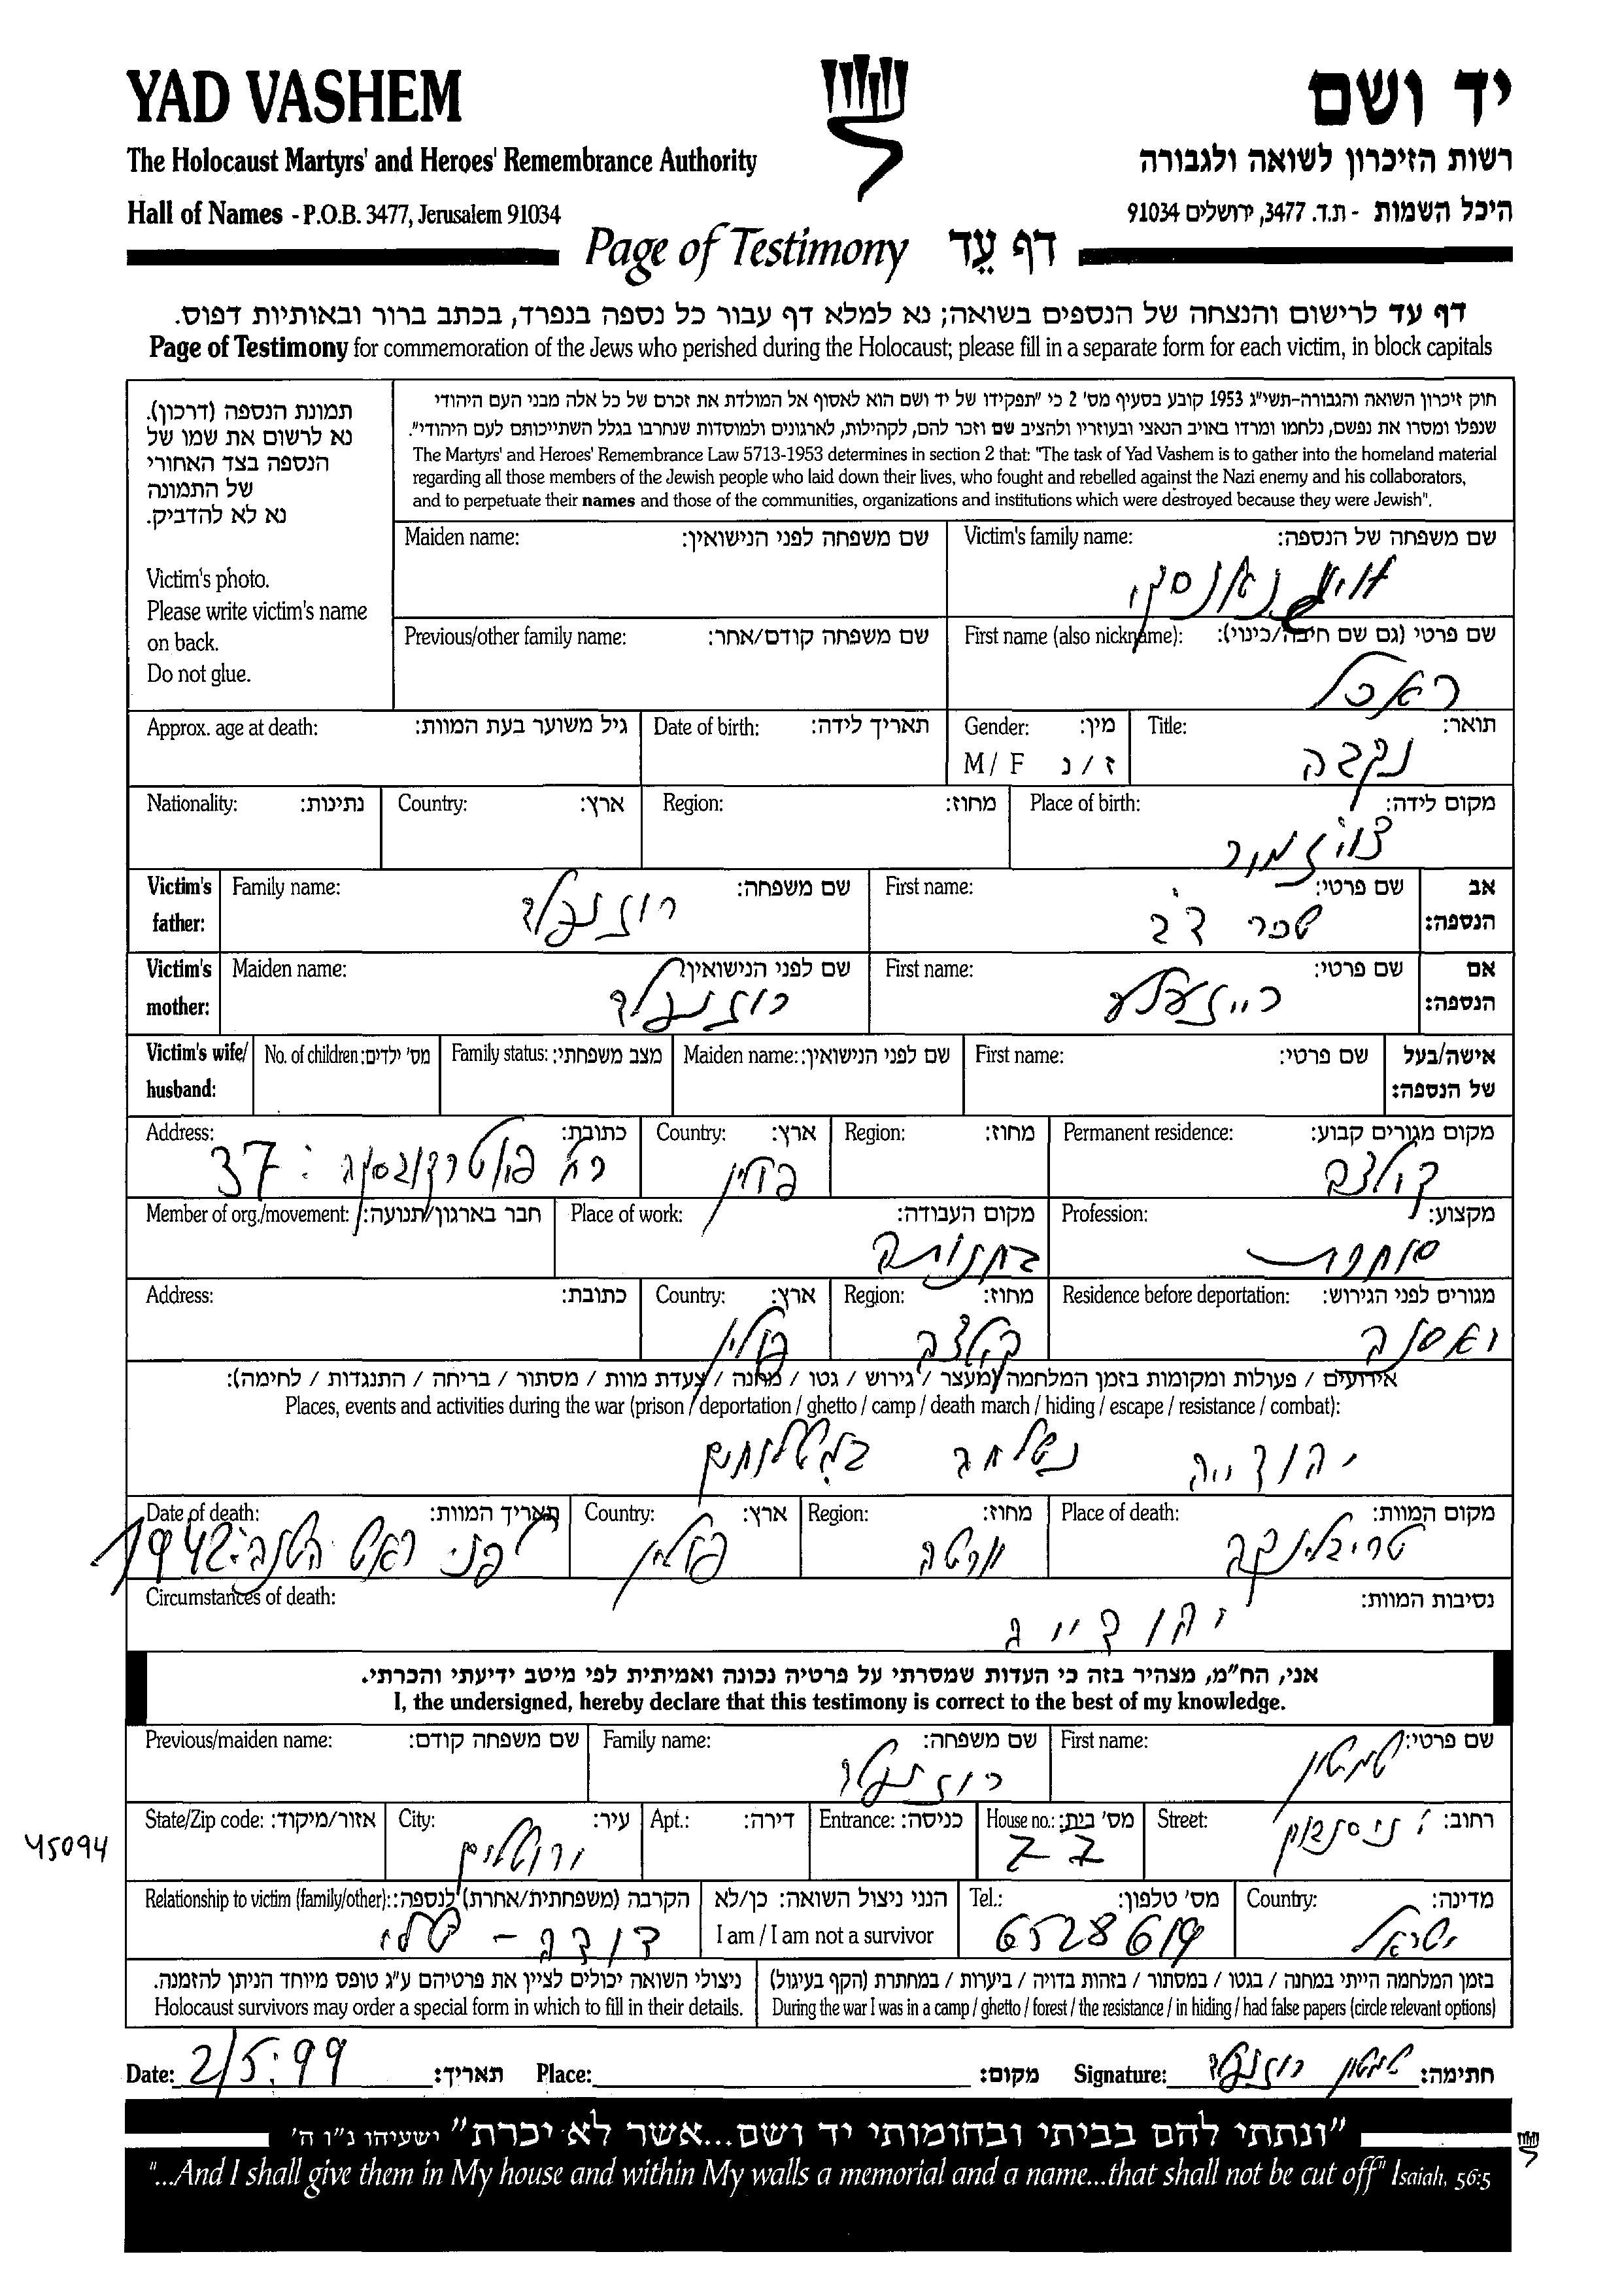 YAD VASHEM
יד ושם
The Holocaust Martyrs' and Heroes' Remembrance Authority
רשות הזיכרון לשואה ולגבורה
Hall of Names - P.O.B. 3477, Jerusalem 91034
היכל השמות - ת.ד. 3477, ירושלים 91034
Page of Testimony דף עֵד
דף עד לרישום והנצחה של הנספים בשואה; נא למלא דף עבור כל נספה בנפרד, בכתב ברור ובאותיות דפוס.
Page of Testimony for commemoration of the Jews who perished during the Holocaust; please fill in a separate form for each victim, in block capitals
תמונת הנספה (דרכון).
נא לרשום את שמו של
הנספה בצד האחורי
של התמונה
נא לא להדביק.
Victim's photo.
Please write victim's name
on back.
Do not glue.
חוק זיכרון השואה והגבורה-תשי"ג 1953 קובע בסעיף מס' 2 כי "תפקידו של יד ושם הוא לאסוף אל המולדת את זכרם של כל אלה מבני העם היהודי
שנפלו ומסרו את נפשם, נלחמו ומרדו באויב הנאצי ובעוזריו ולהציב שם וזכר להם, לקהילות, לארגונים ולמוסדות שנחרבו בגלל השתייכותם לעם היהודי".
The Martyrs' and Heroes' Remembrance Law 5713-1953 determines in section 2 that: "The task of Yad Vashem is to gather into the homeland material
regarding all those members of the Jewish people who laid down their lives, who fought and rebelled against the Nazi enemy and his collaborators,
and to perpetuate their names and those of the communities, organizations and institutions which were destroyed because they were Jewish".
Maiden name: שם משפחה לפני הנישואין:
Victim's family name: שם משפחה של הנספה:
Previous/other family name: שם משפחה קודם/אחר:
First name (also nickname): שם פרטי (גם שם חיבה/כינוי):
ראכל
Approx. age at death: גיל משוער בעת המוות:
Date of birth: תאריך לידה:
Gender: מין:
M / F ז / נ
Title: תואר:
נקבה
Nationality: נתינות:
Country: ארץ:
Region: מחוז:
Place of birth: מקום לידה:
Victim's father: אב הנספה:
Family name: שם משפחה:
רוזנפלד
First name: שם פרטי:
Victim's mother: אם הנספה:
Maiden name: שם לפני הנישואין:
רוזנפלד
First name: שם פרטי:
רייזעלע
Victim's wife/ husband: אישה/בעל של הנספה:
No. of children: מס' ילדים:
Family status: מצב משפחתי:
Maiden name: שם לפני הנישואין:
First name: שם פרטי:
Address: כתובת:
37
Country: ארץ:
פולין
Region: מחוז:
Permanent residence: מקום מגורים קבוע:
קילצה
Member of org./movement: חבר בארגון/תנועה:
Place of work: מקום העבודה:
בחנותה
Profession: מקצוע:
סוחרת
Address: כתובת:
Country: ארץ:
פולין
Region: מחוז:
קילצה
Residence before deportation: מגורים לפני הגירוש:
אירועים / פעולות ומקומות בזמן המלחמה (מעצר / גירוש / גטו / מחנה / צעדת מוות / מסתור / בריחה / התנגדות / לחימה):
Places, events and activities during the war (prison / deportation / ghetto / camp / death march / hiding / escape / resistance / combat):
יהודייה נשלחה במשלוחים
Date of death: תאריך המוות:
לפני ראש השנה 1942
Country: ארץ:
פולין
Region: מחוז:
ורשה
Place of death: מקום המוות:
טריבלינקה
Circumstances of death: נסיבות המוות:
יהודייה
אני, הח"מ, מצהיר בזה כי העדות שמסרתי על פרטיה נכונה ואמיתית לפי מיטב ידיעתי והכרתי.
I, the undersigned, hereby declare that this testimony is correct to the best of my knowledge.
Previous/maiden name: שם משפחה קודם:
Family name: שם משפחה:
רוזנפלד
First name: שם פרטי:
שמשון
State/Zip code: אזור/מיקוד:
City: עיר:
ירושלים
Apt.: דירה:
Entrance: כניסה:
House no.: מס' בית:
77
Street: רחוב:
45094
Relationship to victim (family/other): הקרבה (משפחתית/אחרת) לנספה:
דודה - שלי
הנני ניצול השואה: כן/לא
I am / I am not a survivor
Tel.: מס' טלפון:
6528619
Country: מדינה:
ישראל
ניצולי השואה יכולים לציין את פרטיהם ע"ג טופס מיוחד הניתן להזמנה.
Holocaust survivors may order a special form in which to fill in their details.
בזמן המלחמה הייתי במחנה / בגטו / במסתור / בזהות בדויה / ביערות / במחתרת (הקף בעיגול)
During the war I was in a camp / ghetto / forest / the resistance / in hiding / had false papers (circle relevant options)
Date: 2/5:99 תאריך: Place: מקום: Signature: שמשון רוזנפלד חתימה:
"ונתתי להם בביתי ובחומותי יד ושם...אשר לא יכרת" ישעיהו נ"ו ה'
"...And I shall give them in My house and within My walls a memorial and a name...that shall not be cut off" Isaiah, 56:5